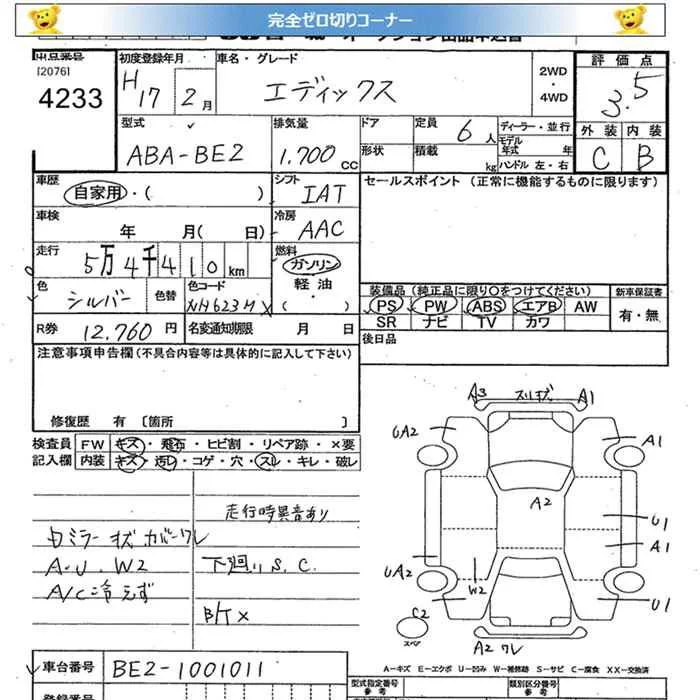 完全ゼロ切りコーナー
出品番号
[2076]
4233
初度登録年月
H17 2月
車名・グレード
エディックス
2WD
・
4WD
評価点
3.5
外装 内装
C B
型式
ABA-BE2
排気量
1,700 cc
ドア
形状
定員 6人
積載 kg
ディーラー・並行
モデル年式 年
ハンドル 左・右
車歴
自家用・( )
シフト
IAT
セールスポイント (正常に機能するものに限ります)
車検
年 月( 日)
冷房
AAC
走行
5万4千410km
燃料
ガソリン
軽油
( )
色
シルバー
色替
色コード
NH623M X
装備品 (純正品に限り○をつけてください)
PS PW ABS エアB AW
SR ナビ TV カワ
新車保証書
有・無
R券 12,760円
名変通知期限 月 日
後日品
注意事項申告欄(不具合内容等は具体的に記入して下さい)
修復歴 有 [箇所 ]
検査員
記入欄
FW キズ・飛石・ヒビ割・リペア跡・×要
内装 キズ・汚レ・コゲ・穴・スレ・キレ・破レ
走行時異音あり
ミラーキズ カバーワレ
A・U・W2
A/C冷えず
下廻りS.C.
B/T×
A3 スリキズ A1
UA2
A1
A2
U1
A1
UA2
W2
U1
C2
スペア
A2 ワレ
A-キズ E-エクボ U-凹み W-補修跡 S-サビ C-腐食 XX-交換済
車台番号
BE2-1001011
型式指定番号
参考
類別区分番号
参考
登録番号